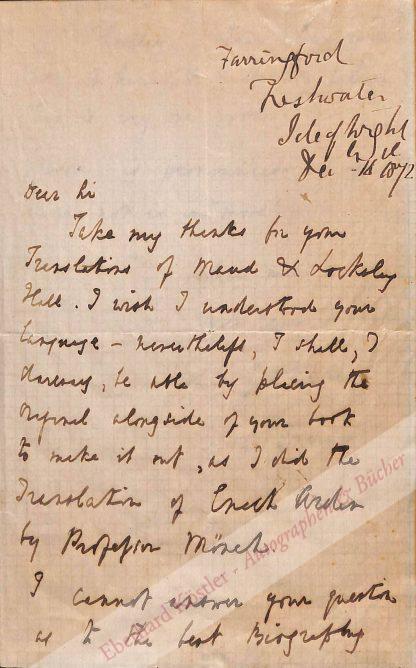 Farringford
Freshwater
Isle of Wight
Dec 1872
Dear Sir
Take my thanks for your
Translations of Maud & Locksley
Hall. I wish I understood your
language – nevertheless, I shall, I
daresay, be able by placing the
original alongside of your book
to make it out, as I did the
Translation of Enoch Arden
by Professor Mönch.
I cannot answer your question
as to the best Biography
Eberhard Köstler - Autographen & Bücher